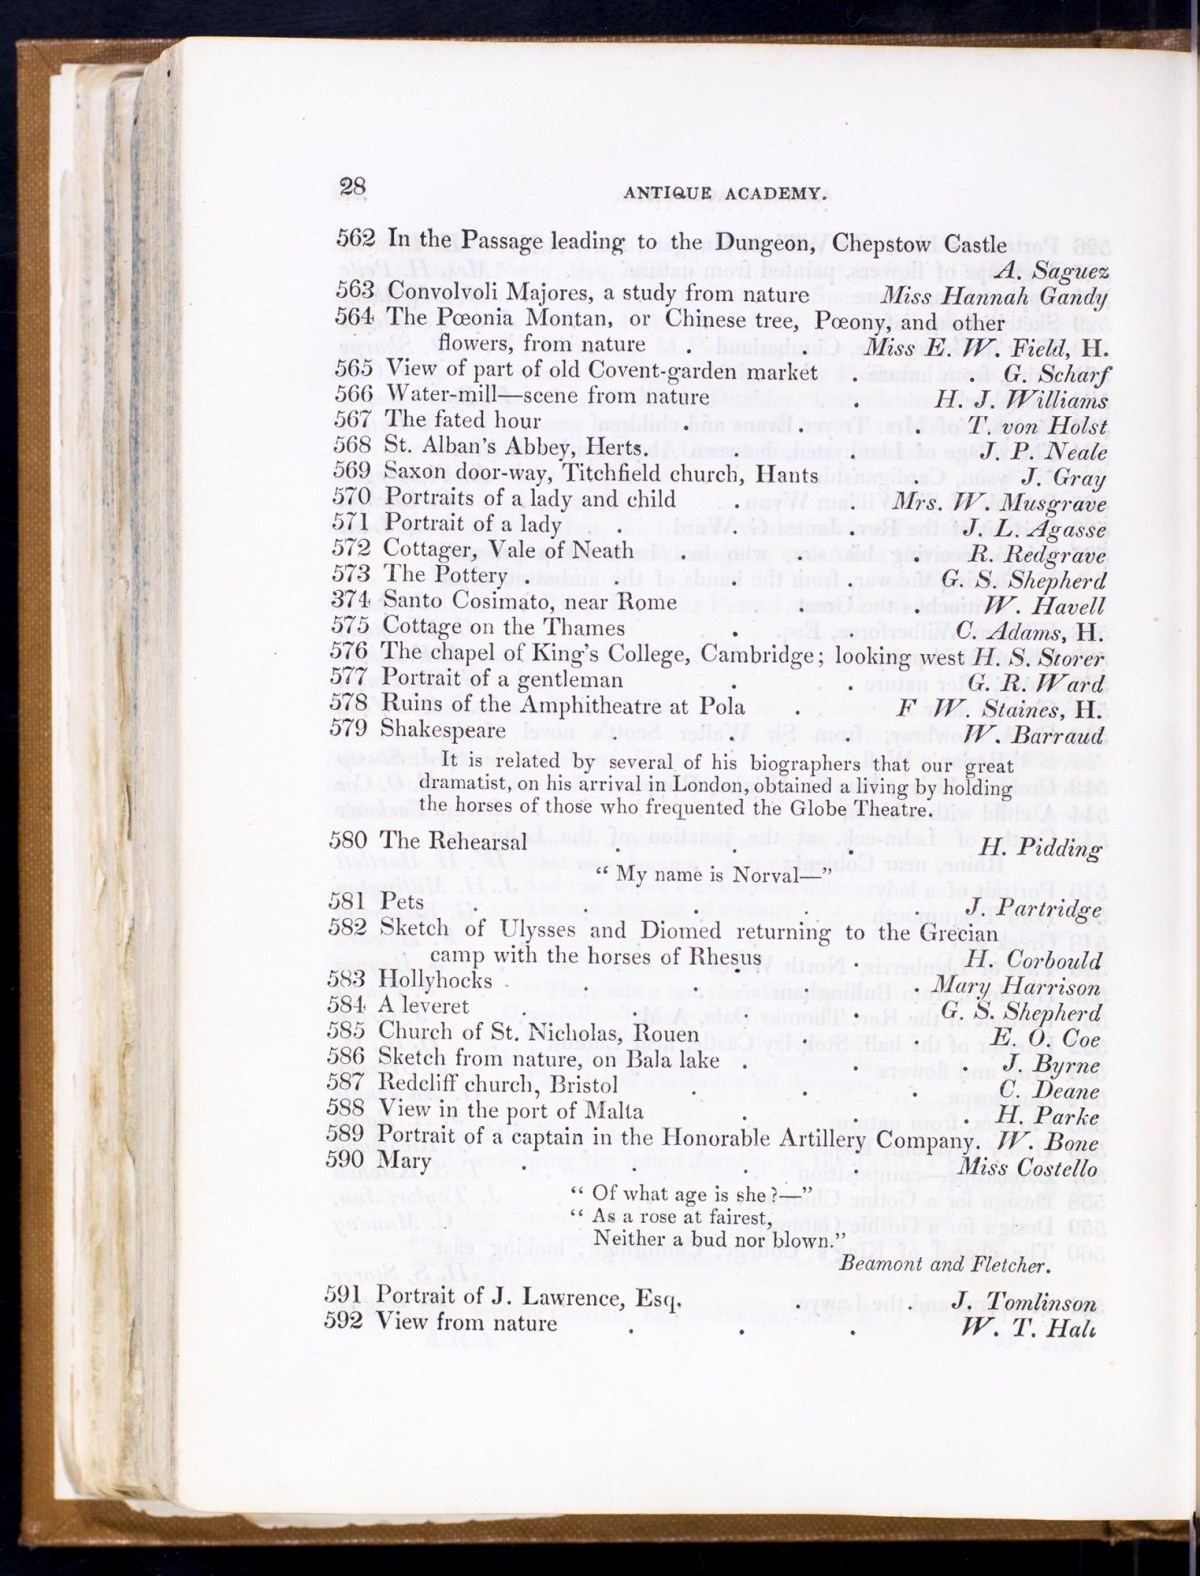 28
ANTIQUE ACADEMY.
562 In the Passage leading to the Dungeon, Chepstow Castle
A. Saguez
563 Convolvoli Majores, a study from nature Miss Hannah Gandy
564 The Pœonia Montan, or Chinese tree, Pœony, and other
flowers, from nature . . Miss E. W. Field, H.
565 View of part of old Covent-garden market . . G. Scharf
566 Water-mill—scene from nature . . H. J. Williams
567 The fated hour . . . T. von Holst
568 St. Alban's Abbey, Herts. . . J. P. Neale
569 Saxon door-way, Titchfield church, Hants . J. Gray
570 Portraits of a lady and child . . Mrs. W. Musgrave
571 Portrait of a lady . . . J. L. Agasse
572 Cottager, Vale of Neath . . . R. Redgrave
573 The Pottery . . . . G. S. Shepherd
374 Santo Cosimato, near Rome . . W. Havell
575 Cottage on the Thames . . C. Adams, H.
576 The chapel of King's College, Cambridge; looking west H. S. Storer
577 Portrait of a gentleman . . G. R. Ward
578 Ruins of the Amphitheatre at Pola . F W. Staines, H.
579 Shakespeare . . W. Barraud
It is related by several of his biographers that our great
dramatist, on his arrival in London, obtained a living by holding
the horses of those who frequented the Globe Theatre.
580 The Rehearsal . . . H. Pidding
“ My name is Norval—”
581 Pets . . . . J. Partridge
582 Sketch of Ulysses and Diomed returning to the Grecian
camp with the horses of Rhesus . H. Corbould
583 Hollyhocks . . . . Mary Harrison
584 A leveret . . . . G. S. Shepherd
585 Church of St. Nicholas, Rouen . . E. O. Coe
586 Sketch from nature, on Bala lake . . . J. Byrne
587 Redcliff church, Bristol . . . C. Deane
588 View in the port of Malta . . . H. Parke
589 Portrait of a captain in the Honorable Artillery Company. W. Bone
590 Mary . . . . Miss Costello
“ Of what age is she?—”
“ As a rose at fairest,
Neither a bud nor blown.”
Beamont and Fletcher.
591 Portrait of J. Lawrence, Esq. . . J. Tomlinson
592 View from nature . . . W. T. Hall